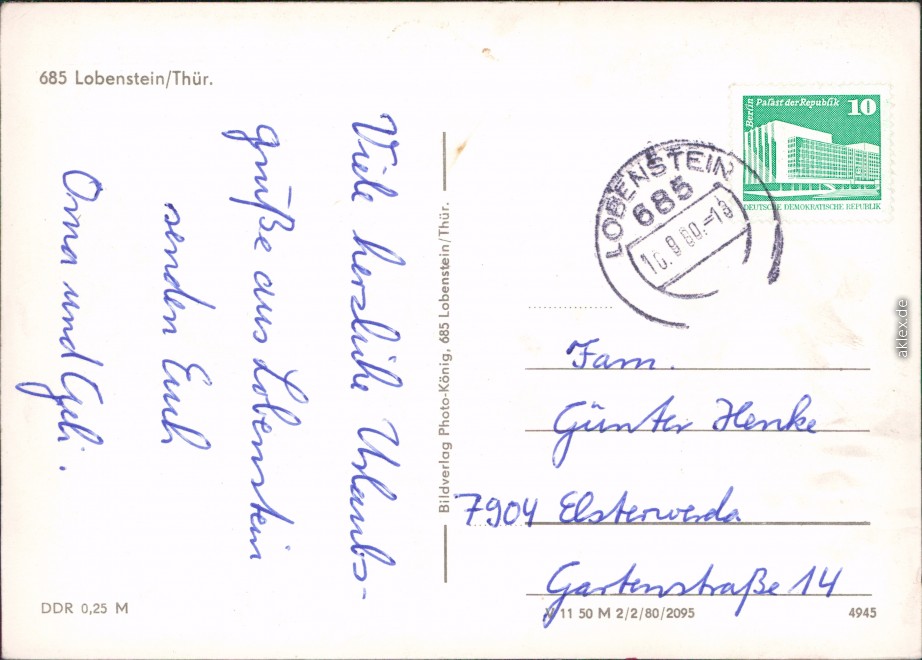 685 Lobenstein/Thür.
Viele herzliche Urlaubs-
grüße aus Lobenstein
senden Euch
Oma und Geli.
Bildverlag Photo-König, 685 Lobenstein/Thür.
Berlin
Palast der Republik 10
DEUTSCHE DEMOKRATISCHE REPUBLIK
LOBENSTEIN
685
Fam.
Günter Henke
7904 Elsterwerda
Gartenstraße 14
DDR 0,25 M
V 11 50 M 2/2/80/2095
4945
aklex.de